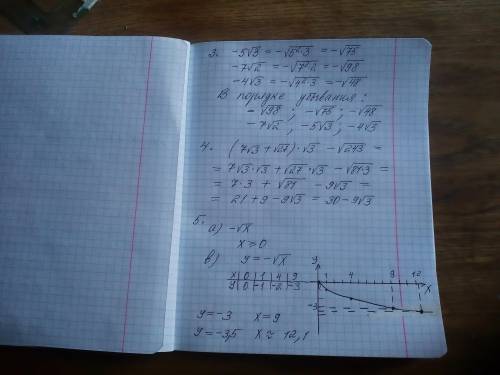 3. -5√3 = -√5²·3 = -√75
-7√2 = -√7²·2 = -√98
-4√3 = -√4²·3 = -√48
В порядке убывания:
-√98 ; -√75 ; -√48
-7√2 , -5√3 ; -4√3
4. (7√3 + √27)·√3 - √243 =
= 7√3·√3 + √27·√3 - √81·3 =
= 7·3 + √81 - 9√3 =
= 21 + 9 - 9√3 = 30 - 9√3
5. а) -√x
x ≥ 0
в) y = -√x
x | 0 | 1 | 4 | 9
y | 0 | -1 | -2 | -3
y 1 4 9 12 x
-3
y = -3 x = 9
y = -3,5 x ≈ 12,1